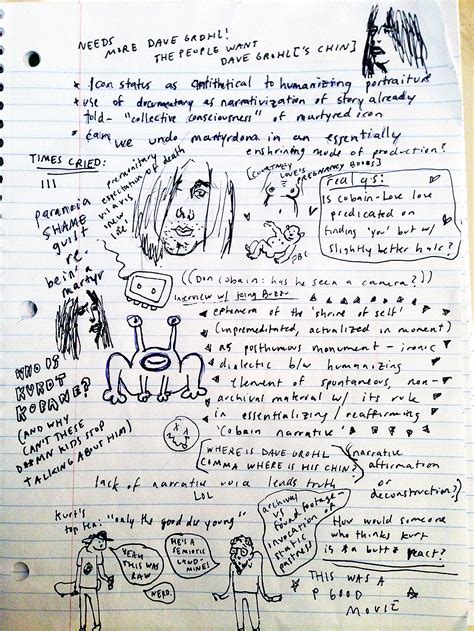 NEEDS
MORE DAVE GROHL!
THE PEOPLE WANT
DAVE GROHL['S CHIN]
* Icon status as antithetical to humanizing portraiture
* use of documentary as narrativization of story already
told - "collective consciousness" of martyred icon
* can we undo martyrdom in an essentially
enshrining mode of production?
TIMES CRIED:
III
premonitary
expectation of death
vis a vis
new
life
[COURTNEY
LOVE'S
PREGNANCY BOOBS]
real qs:
Is cobain-Love love
predicated on
finding 'you' but w/
slightly better hair?
paranoia
SHAME
guilt
re:
bein' a
martyr
FBC
((Don Cobain: has he seen a camera?)
Interview w/
ephemera of the 'shrine of self'
(unpremeditated, actualized in moment)
as posthumous monument - ironic
dialectic b/w humanizing
element of spontaneous, non-
archival material w/ its role
in essentializing / reaffirming
'Cobain narrative'
WHO IS
KURDT
KOBANE?
(AND WHY
CAN'T THESE
DARMN KIDS STOP
TALKING ABOUT HIM)
WHERE IS DAVE GROHL
COMMA WHERE IS HIS CHIN?
(narrative
affirmation
or
deconstruction?)
lack of narrative voice lends truth
LOL
Kurt's
top ten: "only the good die young"
archival
vs
found footage -
invocation of
static
pastness
How would someone
who thinks Kurt
is a butt react?
YEAH
THIS WAS
RAW
HE'S A
SEMIOTIC
LAND
MINE!
NERD.
THIS WAS A
P GOOD
MOVIE